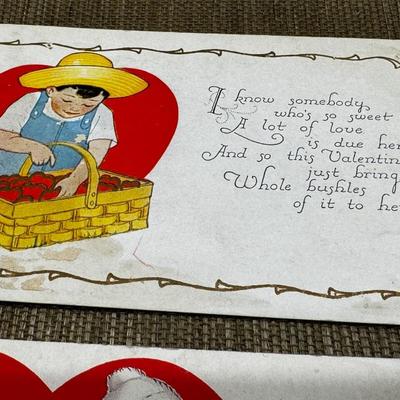 I know somebody,
who's so sweet
A lot of love
is due her
And so this Valentin
just bring
Whole bushles
of it to he